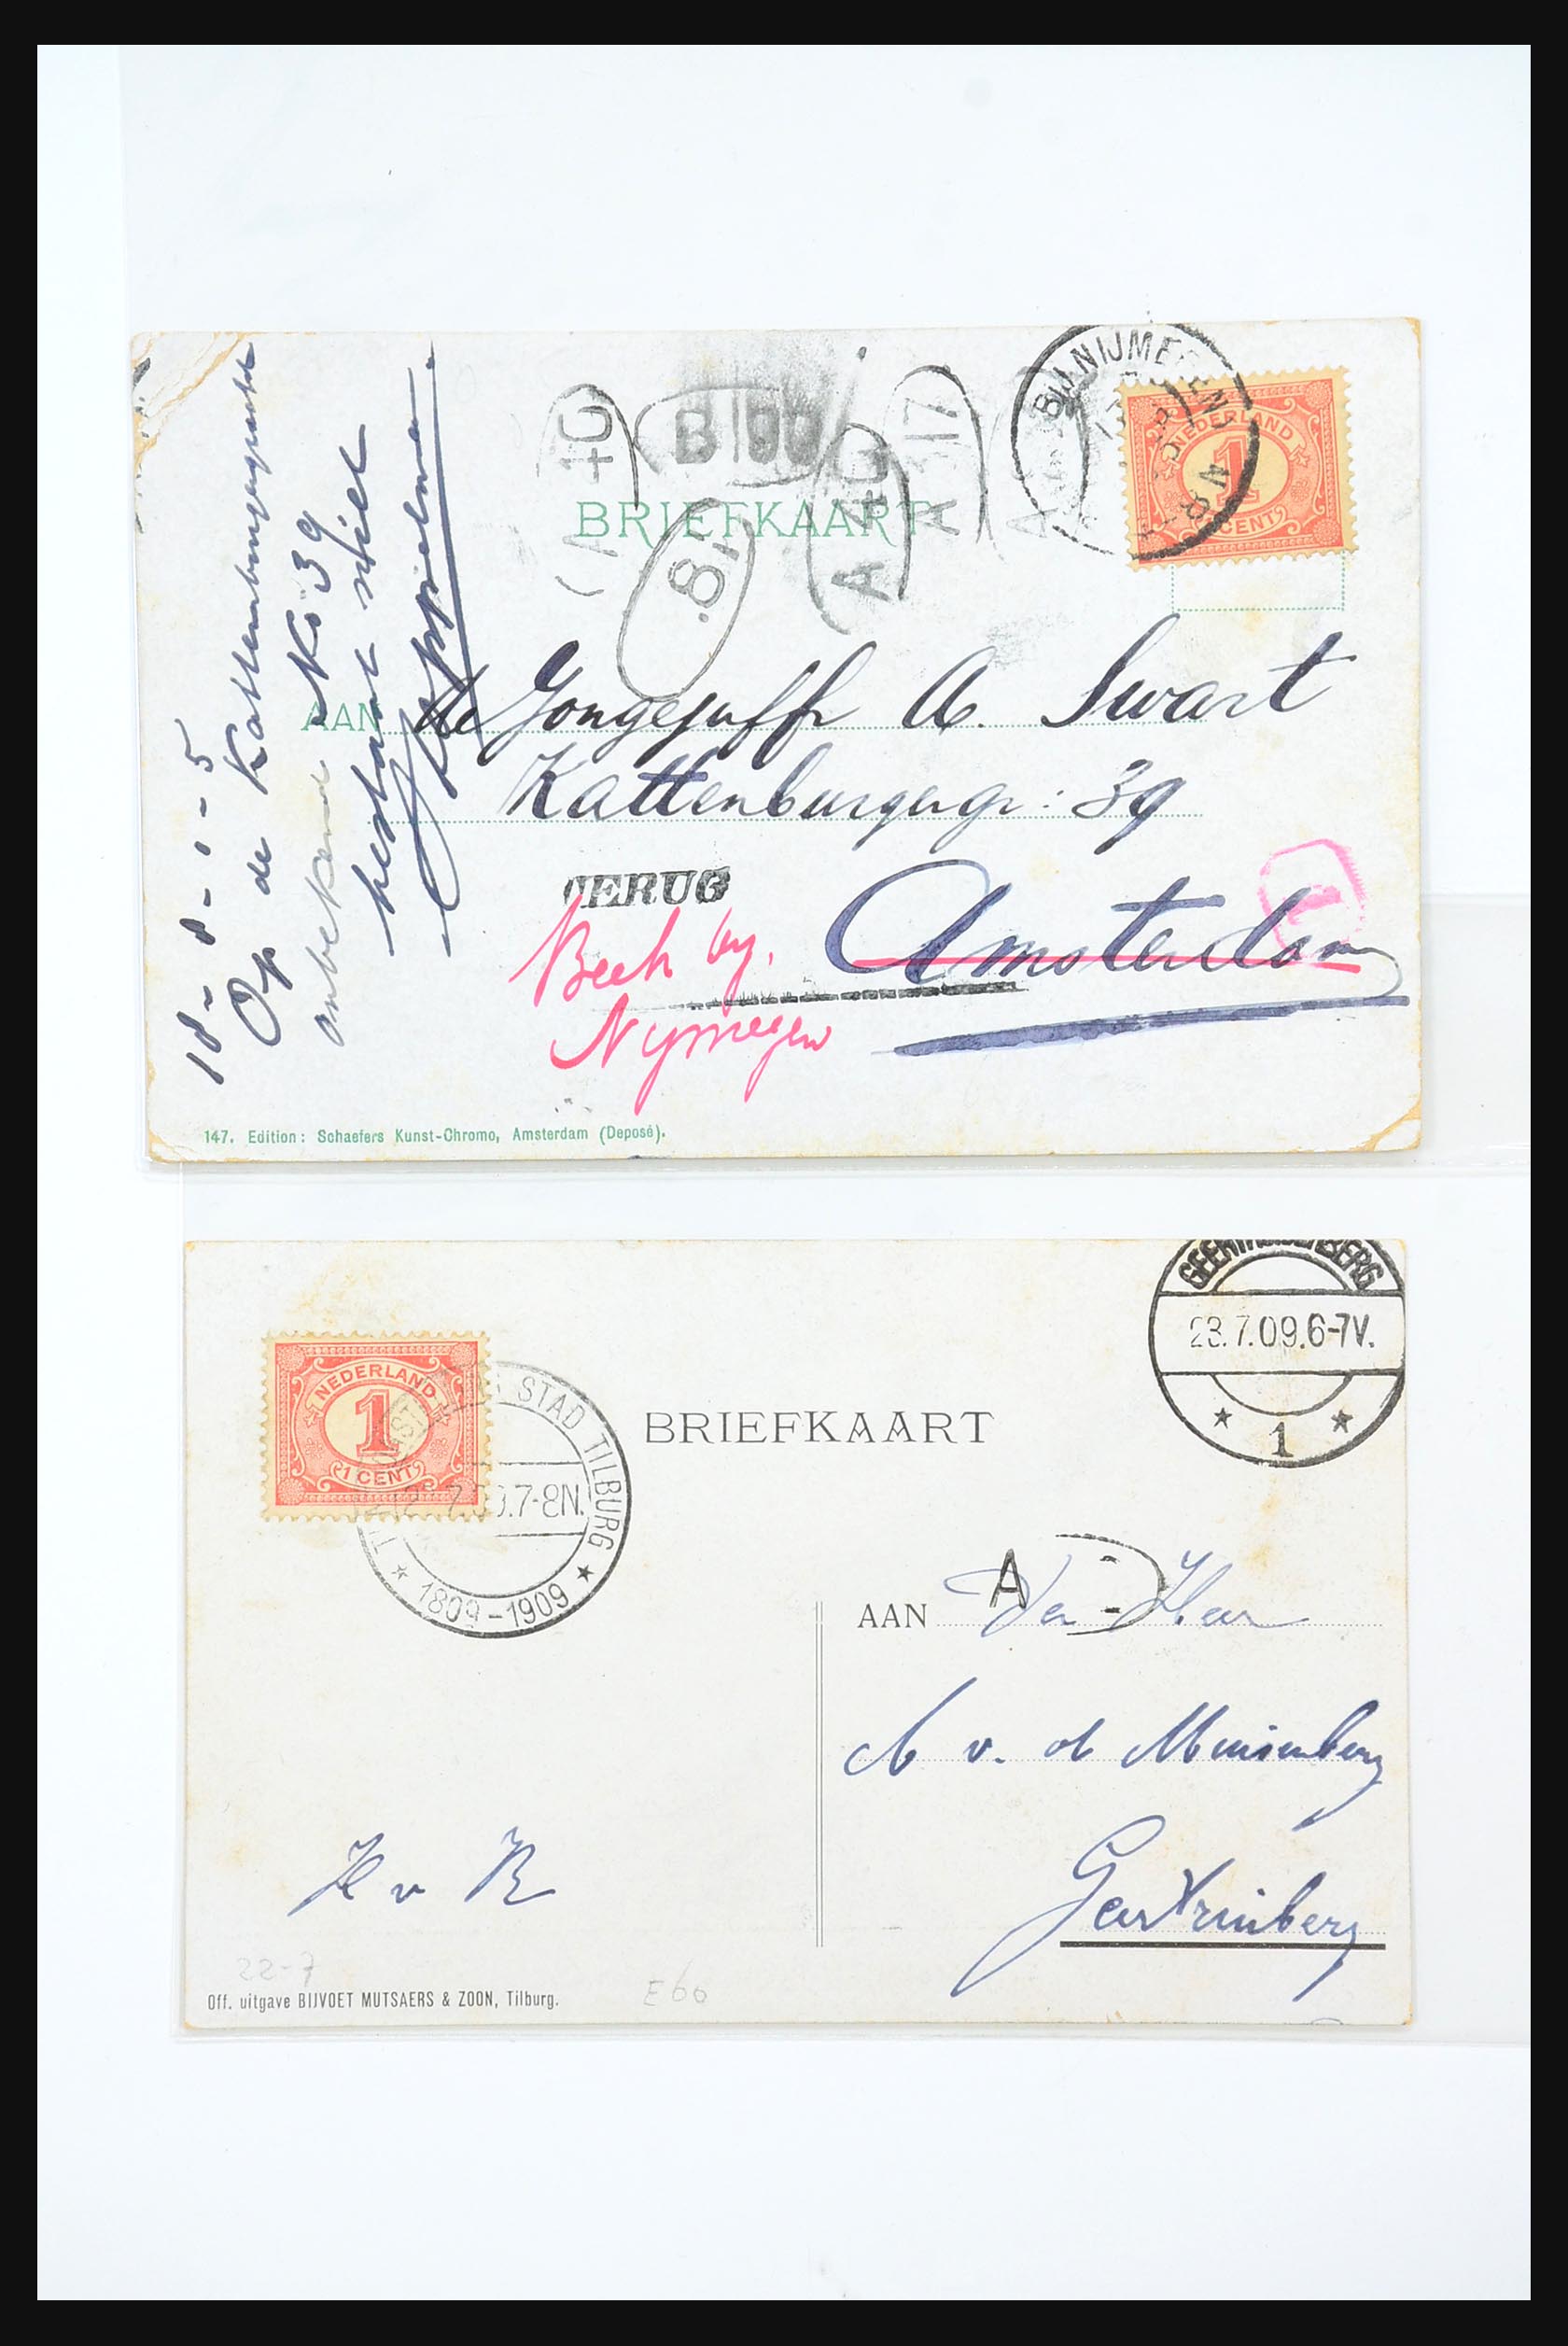 BIJ NIJMEGEN
NEDERLAND
1
CENT
A 40
B 00
A 40
A 17
.81
BRIEFKAART
AAN
de Jongejuffr A. Swart
Kattenburgergr: 39
Amsterdam
TERUG
Beek by.
Nymegen
1
18-8-0-5
Op de Kattenburgergracht
No 39
onbekend
bestaat niet
147. Edition: Schaefers Kunst-Chromo, Amsterdam (Deposé).
28.7.09.6-7V.
1
NEDERLAND
1
1 CENT
STAD TILBURG
7-8N.
1809-1909
BRIEFKAART
A
AAN Den Heer
v. d. Muisenberg
Geertruinberg
H v B
22-7
Off. uitgave BIJVOET MUTSAERS & ZOON, Tilburg.
E60